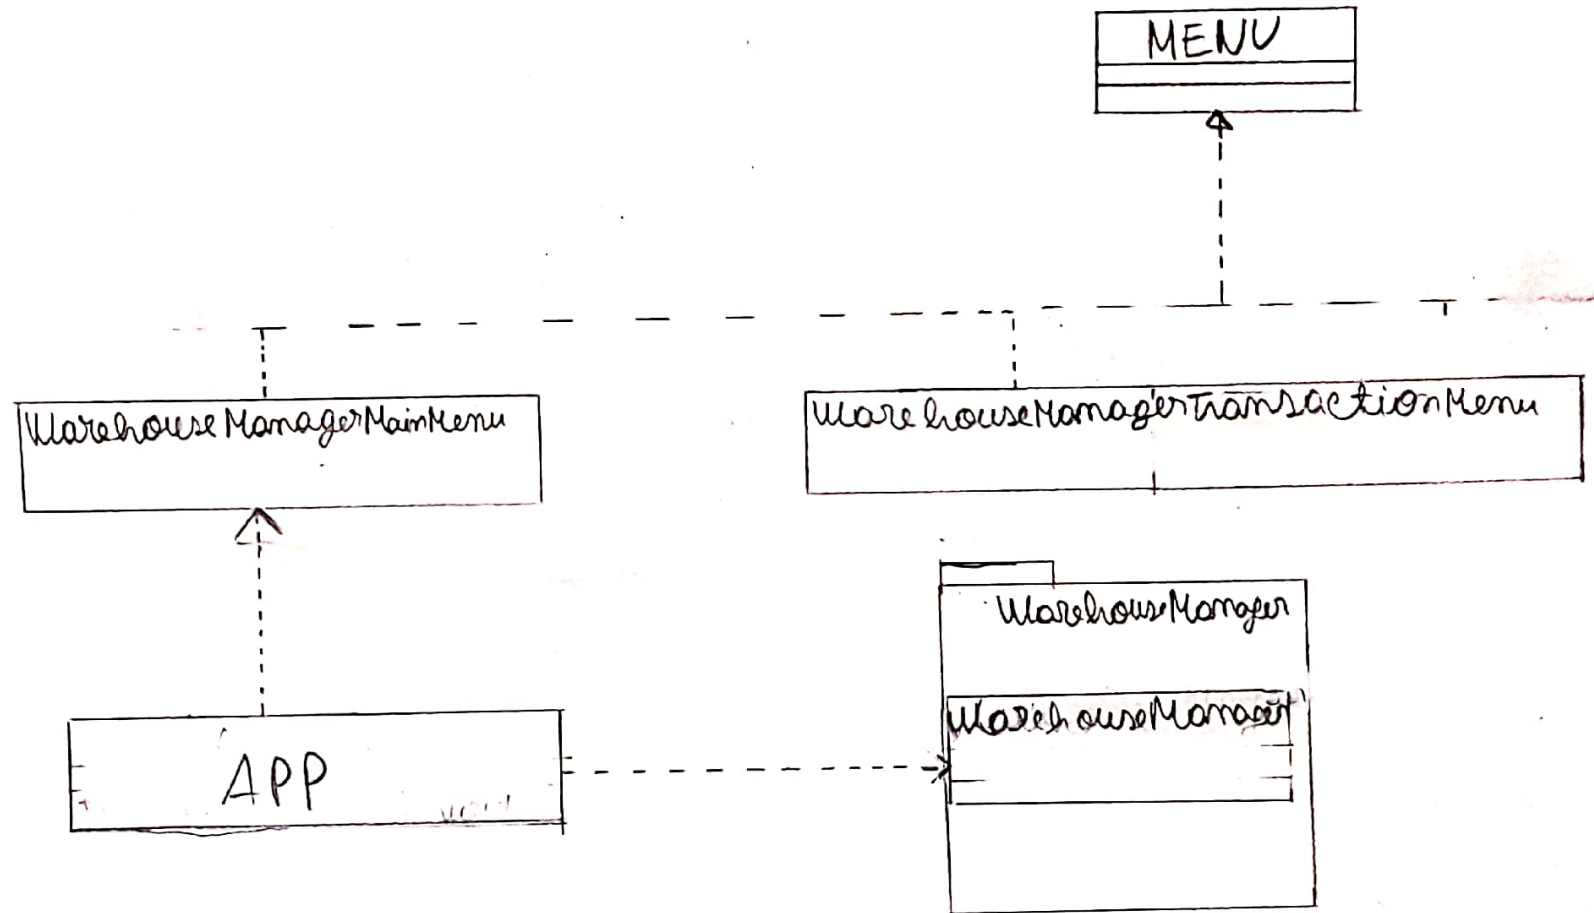 MENU
WarehouseManagerMainMenu
WarehouseManagerTransactionMenu
WarehouseManager
WarehouseManager
APP